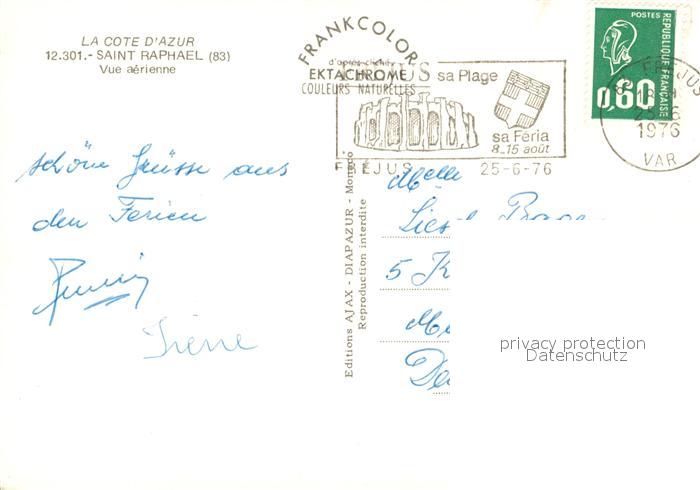 LA COTE D'AZUR
12.301.- SAINT RAPHAEL (83)
Vue aérienne
FRANKCOLOR
d'après cliché
EKTACHROME
COULEURS NATURELLES
FREJUS sa Plage
sa Féria
8-15 août
FREJUS 25-6-76
POSTES
REPUBLIQUE FRANÇAISE
0,60
FREJUS
25-6
1976
VAR
schöne Grüsse aus
den Ferien
Irene
Editions AJAX - DIAPAZUR - Monaco
Reproduction interdite
Melle
5 K
privacy protection
Datenschutz